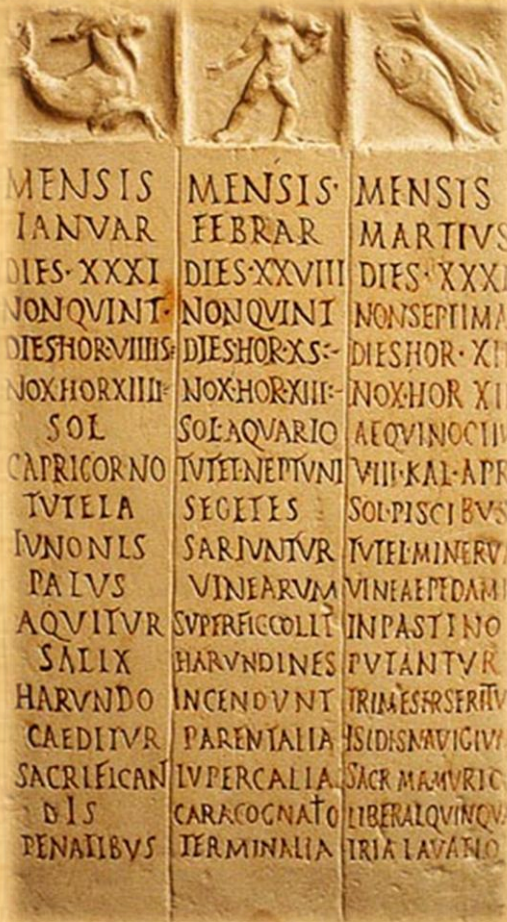 MENSIS
IANVAR
DIES·XXXI
NONQVINT·
DIESHOR·VIIIIS
NOX·HORXIIII
SOL
CAPRICORNO
TVTELA
IVNONIS
PALVS
AQVITVR
SALIX
HARVNDO
CAEDITVR
SACRIFICAN
DIS
PENATIBVS
MENSIS·
FEBRAR
DIES·XXVIII
NONQVINT
DIES·HOR·XS
NOX·HOR·XIII
SOL·AQVARIO
TVTEL·NEPTVNI
SEGETES
SARIVNTVR
VINEARVM
SVPERFICCOLIT
HARVNDINES
INCENDVNT
PARENTALIA
LVPERCALIA
CARACOGNATO
TERMINALIA
MENSIS
MARTIVS
DIES·XXXI
NONSEPTIMA
DIESHOR·XII
NOX·HOR XII
AEQVINOCTIV
VIII·KAL·APR
SOL·PISCIBVS
TVTEL·MINERV
VINEAEPEDAM
INPASTINO
PVTANTVR
TRIMESTRSERITV
ISIDISNAVIGIV
SACR MAMVRIO
LIBERALQVINQV
TRIA LAVATIO